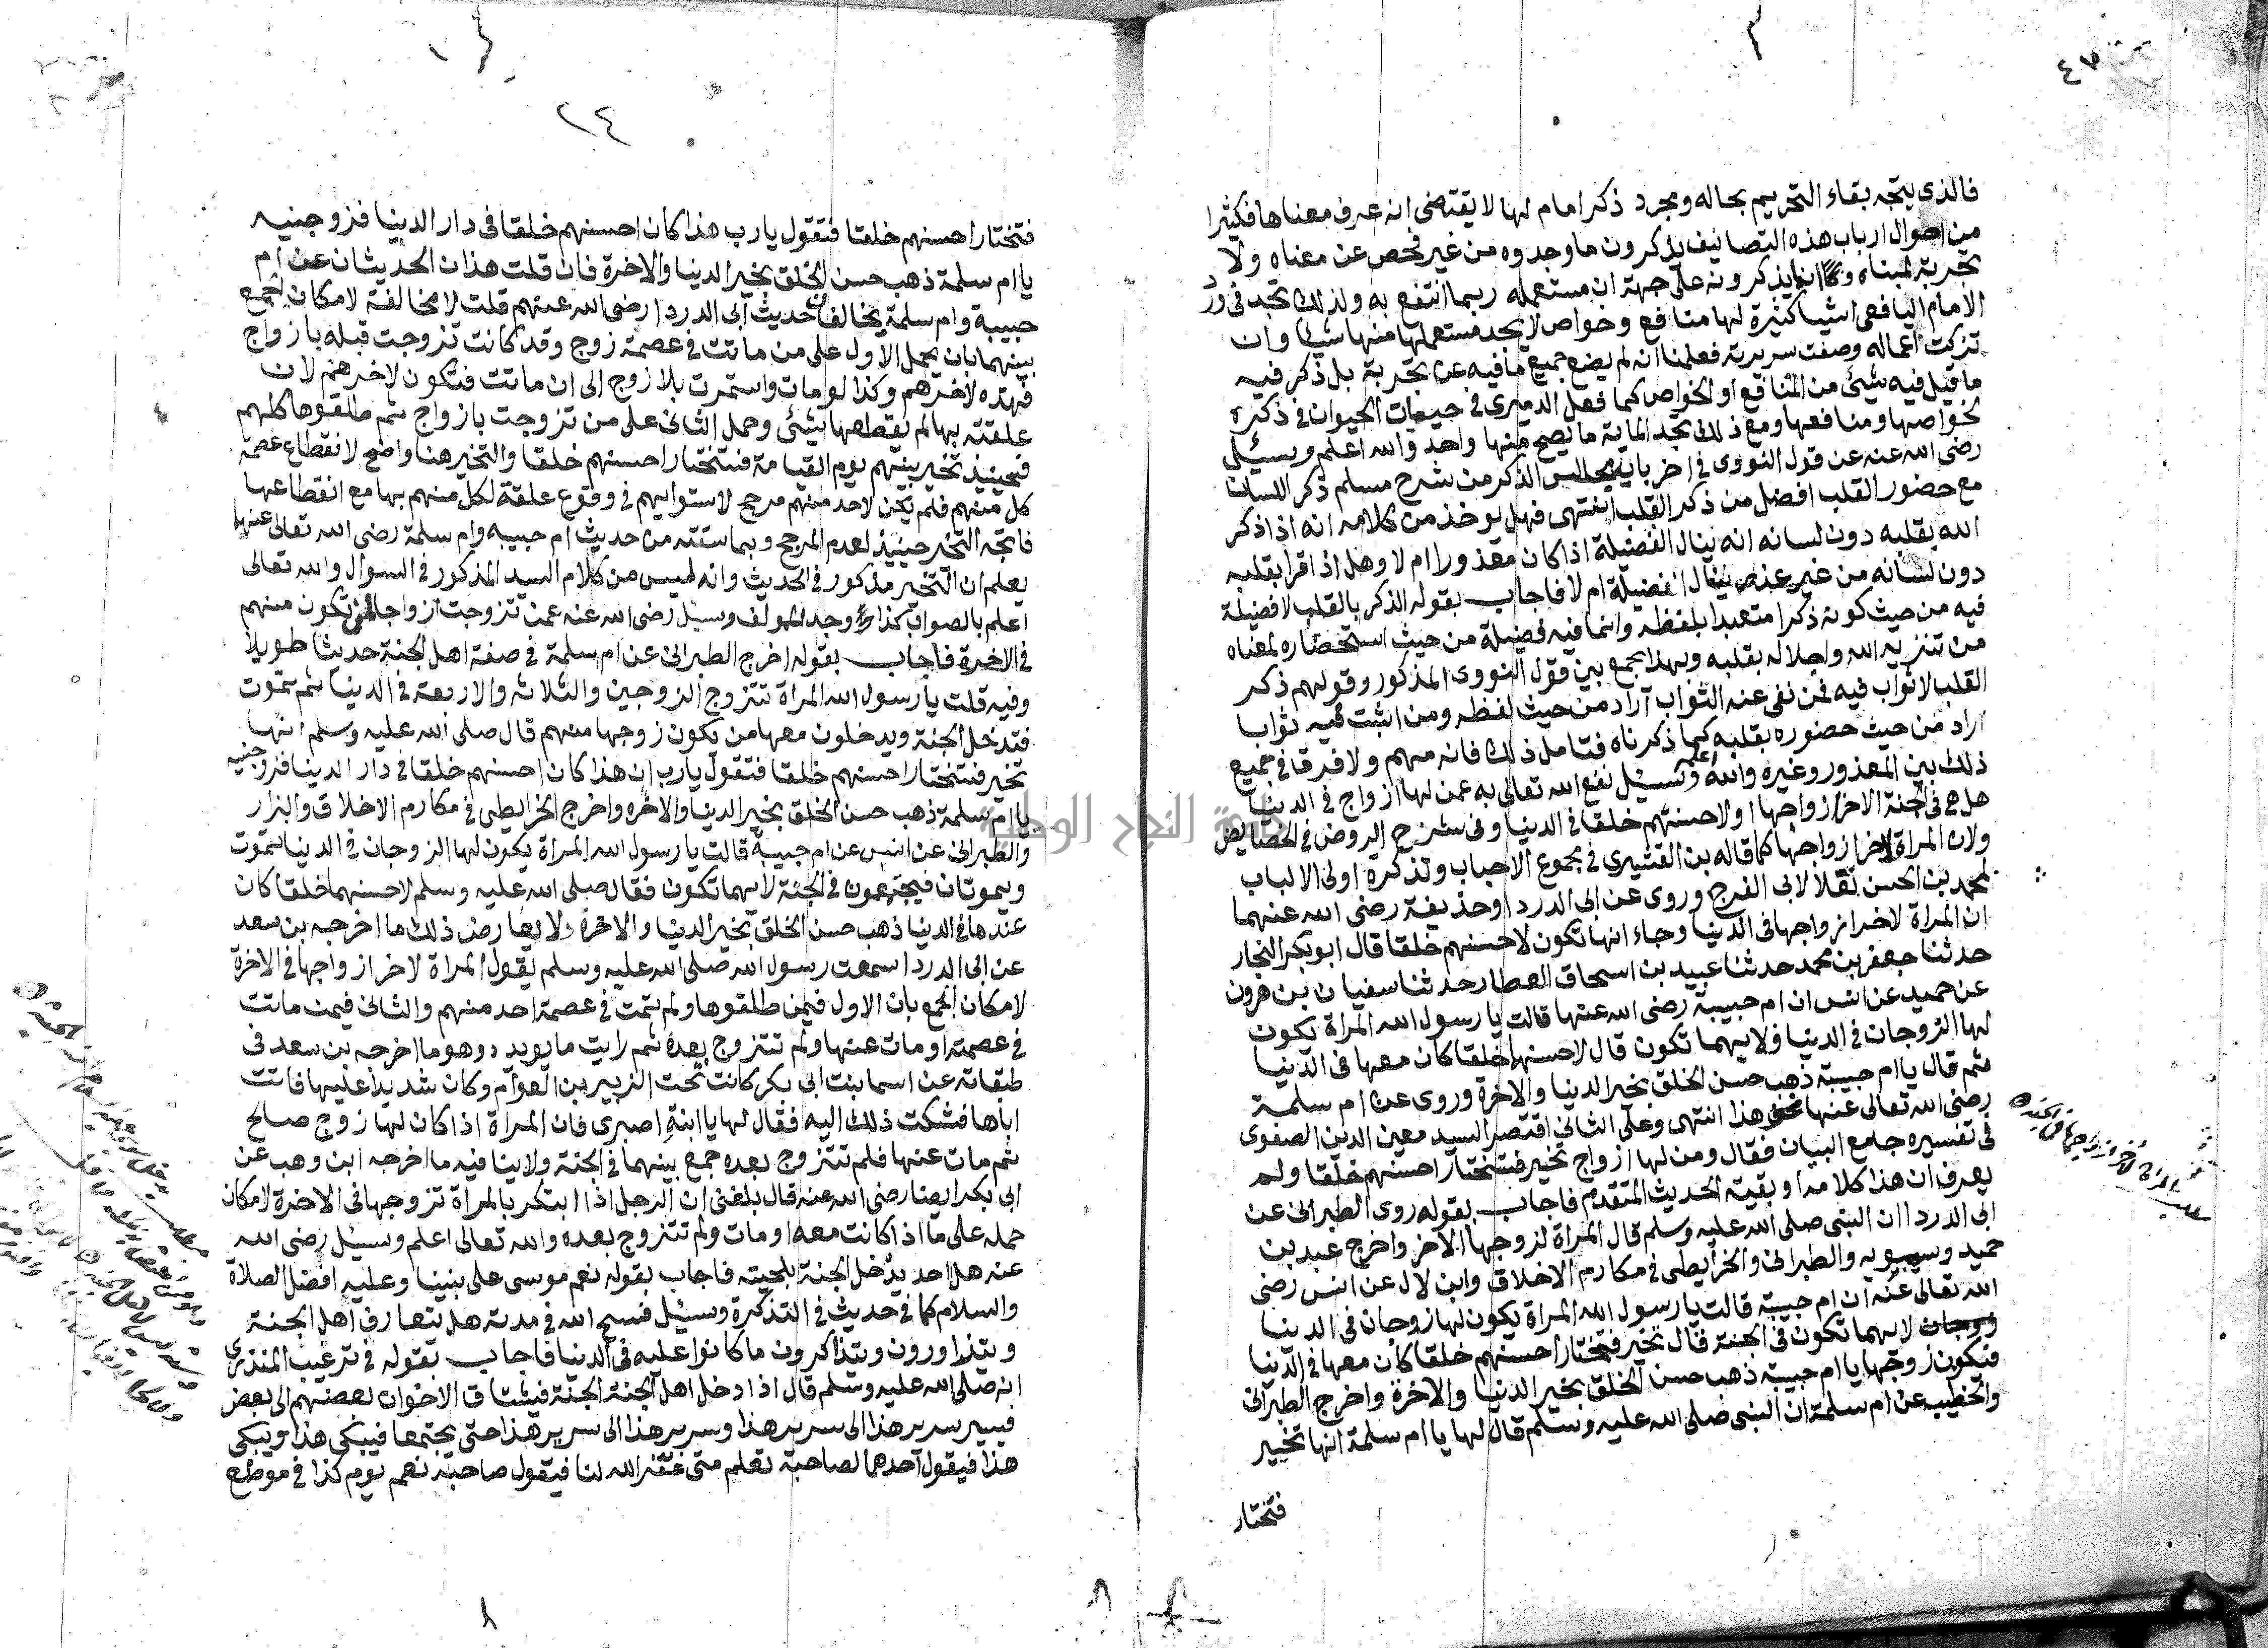 ٤٧
فالذي يتجه بقاء التحريم بحاله ومجرد ذكر امام لها لا يقتضى انه عرف معناها فكثيرا
من احوال ارباب هذه التصانيف يذكرون ما وجدوه من غير فحص عن معناه ولا
تجربة لمبناه وانما يذكرونه على جهة ان مستعمله ربما انتفع به ولذلك تجد فى ورد
الامام اليافعى اشيا كثيرة لها منافع وخواص لا يجد مستعملها منها شيا وان
تزكت اعماله وصفت سريرته فعلمنا انه لم يضع جميع ما فيه عن تجربة بل ذكر فيه
ما قيل فيه شيئ من المنافع او الخواص كما فعل الدميرى في حيوة الحيوان فى ذكره
لخواصها ومنافعها ومع ذلك تجد الماية ما يصح منها واحد والله اعلم وسيئل
رضى الله عنه عن قول النووى فى اخر باب مجالس الذكر من شرح مسلم ذكر اللسان
مع حضور القلب افضل من ذكر القلب انتهى فهل يوخذ من كلامه انه اذا ذكر
الله بقلبه دون لسانه انه ينال الفضيلة اذا كان معذورا ام لا وهل اذا قرا بقلبه
دون لسانه من غير عذر ينال الفضيلة ام لا فاجاب بقوله الذكر بالقلب لا فضيلة
فيه من حيث كونه ذكرا متعبدا بلفظه وانما فيه فضيلة من حيث استحضاره لمعناه
من تنزيه الله واجلاله بقلبه وبهذا يجمع بين قول النووى المذكور وقولهم ذكر
القلب لا ثواب فيه فمن نفى عنه الثواب اراد من حيث لفظه ومن اثبت فيه ثوابا
اراد من حيث حضوره بقلبه كما ذكرناه فتامل ذلك فانه مهم ولا فرق فى جميع
ذلك بين المعذور وغيره والله اعلم وسيئل نفع الله تعالى به عمن لها ازواج فى الدنيا
هل هى فى الجنة الاخر ازواجها او لاحسنهم خلقا فى الدنيا وفى شرح الروض فى الخصايص
ولان المراة لاخر ازواجها كما قاله بن القشيرى فى مجموع الاحباب وتذكرة اولى الالباب
لمحمد بن الحسن نقلا لابى الفرج وروى عن ابى الدردا وحذيفة رضى الله عنهما
ان المراة لاخر ازواجها فى الدنيا وجاء انها تكون لاحسنهم خلقا قال ابو بكر النجار
حدثنا جعفر بن محمد حدثنا عبيد بن اسحاق العطار حدثنا سفيان بن هرون
عن حميد عن انس ان ام حبيبة رضى الله عنها قالت يا رسول الله المراة يكون
لها الزوجان فى الدنيا فلايهما تكون قال لاحسنهما خلقا كان معها فى الدنيا
ثم قال يا ام حبيبة ذهب حسن الخلق بخير الدنيا والاخرة وروى عن ام سلمة
رضى الله تعالى عنها نحو هذا انتهى وعلى الثانى اقتصر السيد معين الدين الصفوى
فى تفسيره جامع البيان فقال ومن لها ازواج تخير فتختار احسنهم خلقا ولم
يعرف ان هذا كلامه او بقية الحديث المتقدم فاجاب بقوله روى الطبرانى عن
ابى الدردا ان النبى صلى الله عليه وسلم قال المراة لزوجها الاخر واخرج عبد بن
حميد وسمويه والطبرانى والخرايطى فى مكارم الاخلاق وابن لال عن انس رضى
الله تعالى عنه ان ام حبيبة قالت يا رسول الله المراة يكون لها زوجان فى الدنيا
لايهما تكون فى الجنة قال تخير فتختار احسنهم خلقا كان معها فى الدنيا
فتكون زوجها يا ام حبيبة ذهب حسن الخلق بخير الدنيا والاخرة واخرج الطبرانى
والخطيب عن ام سلمة ان النبى صلى الله عليه وسلم قال لها يا ام سلمة انها تخير
فتختار
١٤
فتختار احسنهم خلقا فتقول يا رب هذا كان احسنهم خلقا فى دار الدنيا فزوجنيه
يا ام سلمة ذهب حسن الخلق بخير الدنيا والاخرة فان قلت هذان الحديثان عن ام
حبيبة وام سلمة يخالفان حديث ابى الدردا رضى الله عنهم قلت لا مخالفة لامكان الجمع
بينهما بان يحمل الاول على من ماتت فى عصمة زوج وقد كانت تزوجت قبله بازواج
فهذه لاخرهم وكذا لو مات واستمرت بلا زوج الى ان ماتت فتكون لاخرهم لان
علقته بها لم يقطعها شيئ وحمل الثانى على من تزوجت بازواج ثم طلقوها كلهم
فحينيذ تخير بينهم يوم القيامة فتختار احسنهم خلقا والتخير هنا واضح لانقطاع عصمة
كل منهم فلم يكن لاحد منهم مرجح لاستوايهم فى وقوع علقة لكل منهم بها مع انقطاعها
فاتجه التخير حينيذ لعدم المرجح وبما سقته من حديث ام حبيبه وام سلمة رضى الله تعالى عنهما
يعلم ان التخير مذكور فى الحديث وانه ليس من كلام السيد المذكور فى السوال والله تعالى
اعلم بالصواب كذا وجد للمولف وسيل رضى الله عنه عمن تزوجت ازواجا لمن تكون منهم
فى الاخرة فاجاب بقوله اخرج الطبرانى عن ام سلمة فى صفة اهل الجنة حديثا طويلا
وفيه قلت يا رسول الله المراة تتزوج الزوجين والثلاثه والاربعة فى الدنيا ثم تموت
فتدخل الجنة ويدخلون معها من يكون زوجها منهم قال صلى الله عليه وسلم انها
تخير فتختار احسنهم خلقا فتقول يا رب ان هذا كان احسنهم خلقا فى دار الدنيا فزوجنيه
يا ام سلمة ذهب حسن الخلق بخير الدنيا والاخره واخرج الخرايطى فى مكارم الاخلاق والبزار
والطبرانى عن انس عن ام حبيبة قالت يا رسول الله المراة يكون لها الزوجان فى الدنيا تموت
ويموتان فيجتمعون فى الجنة لايهما تكون فقال صلى الله عليه وسلم لاحسنهما خلقا كان
عندها فى الدنيا ذهب حسن الخلق بخير الدنيا والاخرة ولا يعارض ذلك ما اخرجه بن سعد
عن ابى الدردا سمعت رسول الله صلى الله عليه وسلم يقول المراة لاخر ازواجها فى الاخرة
لامكان الجمع بان الاول فيمن طلقوها ولم تمت فى عصمة احد منهم والثانى فيمن ماتت
فى عصمته او مات عنها ولم تتزوج بعده ثم رايت ما يويده وهو ما اخرجه بن سعد فى
طبقاته عن اسما بنت ابى بكر كانت تحت الزبير بن العوام وكان شديدا عليها فاتت
اباها فشكت ذلك اليه فقال لها يا ابنة اصبرى فان المراة اذا كان لها زوج صالح
ثم مات عنها فلم تتزوج بعده جمع بينهما فى الجنة ولا ينافيه ما اخرجه ابن وهب عن
ابى بكر ايضا رضى الله عنه قال بلغنى ان الرجل اذا ابتكر بالمراة تزوجها فى الاخرة لامكان
حمله على ما اذا كانت معه او مات ولم تتزوج بعده والله تعالى اعلم وسيئل رضى الله
عنه هل احد يدخل الجنة بلحيته فاجاب بقوله نعم موسى على نبينا وعليه افضل الصلاة
والسلام كما فى حديث فى التذكرة وسيئل فسح الله فى مدته هل يتعارف اهل الجنة
ويتزاورون ويتذاكرون ما كانوا عليه فى الدنيا فاجاب بقوله فى ترغيب المنذرى
انه صلى الله عليه وسلم قال اذا دخل اهل الجنة الجنة فيشتاق الاخوان بعضهم الى بعض
فيسير سرير هذا الى سرير هذا وسرير هذا الى سرير هذا حتى يجتمعا فيبكى هذا ويبكى
هذا فيقول احدهما لصاحبه تعلم متى غفر الله لنا فيقول صاحبه نعم يوم كذا فى موضع